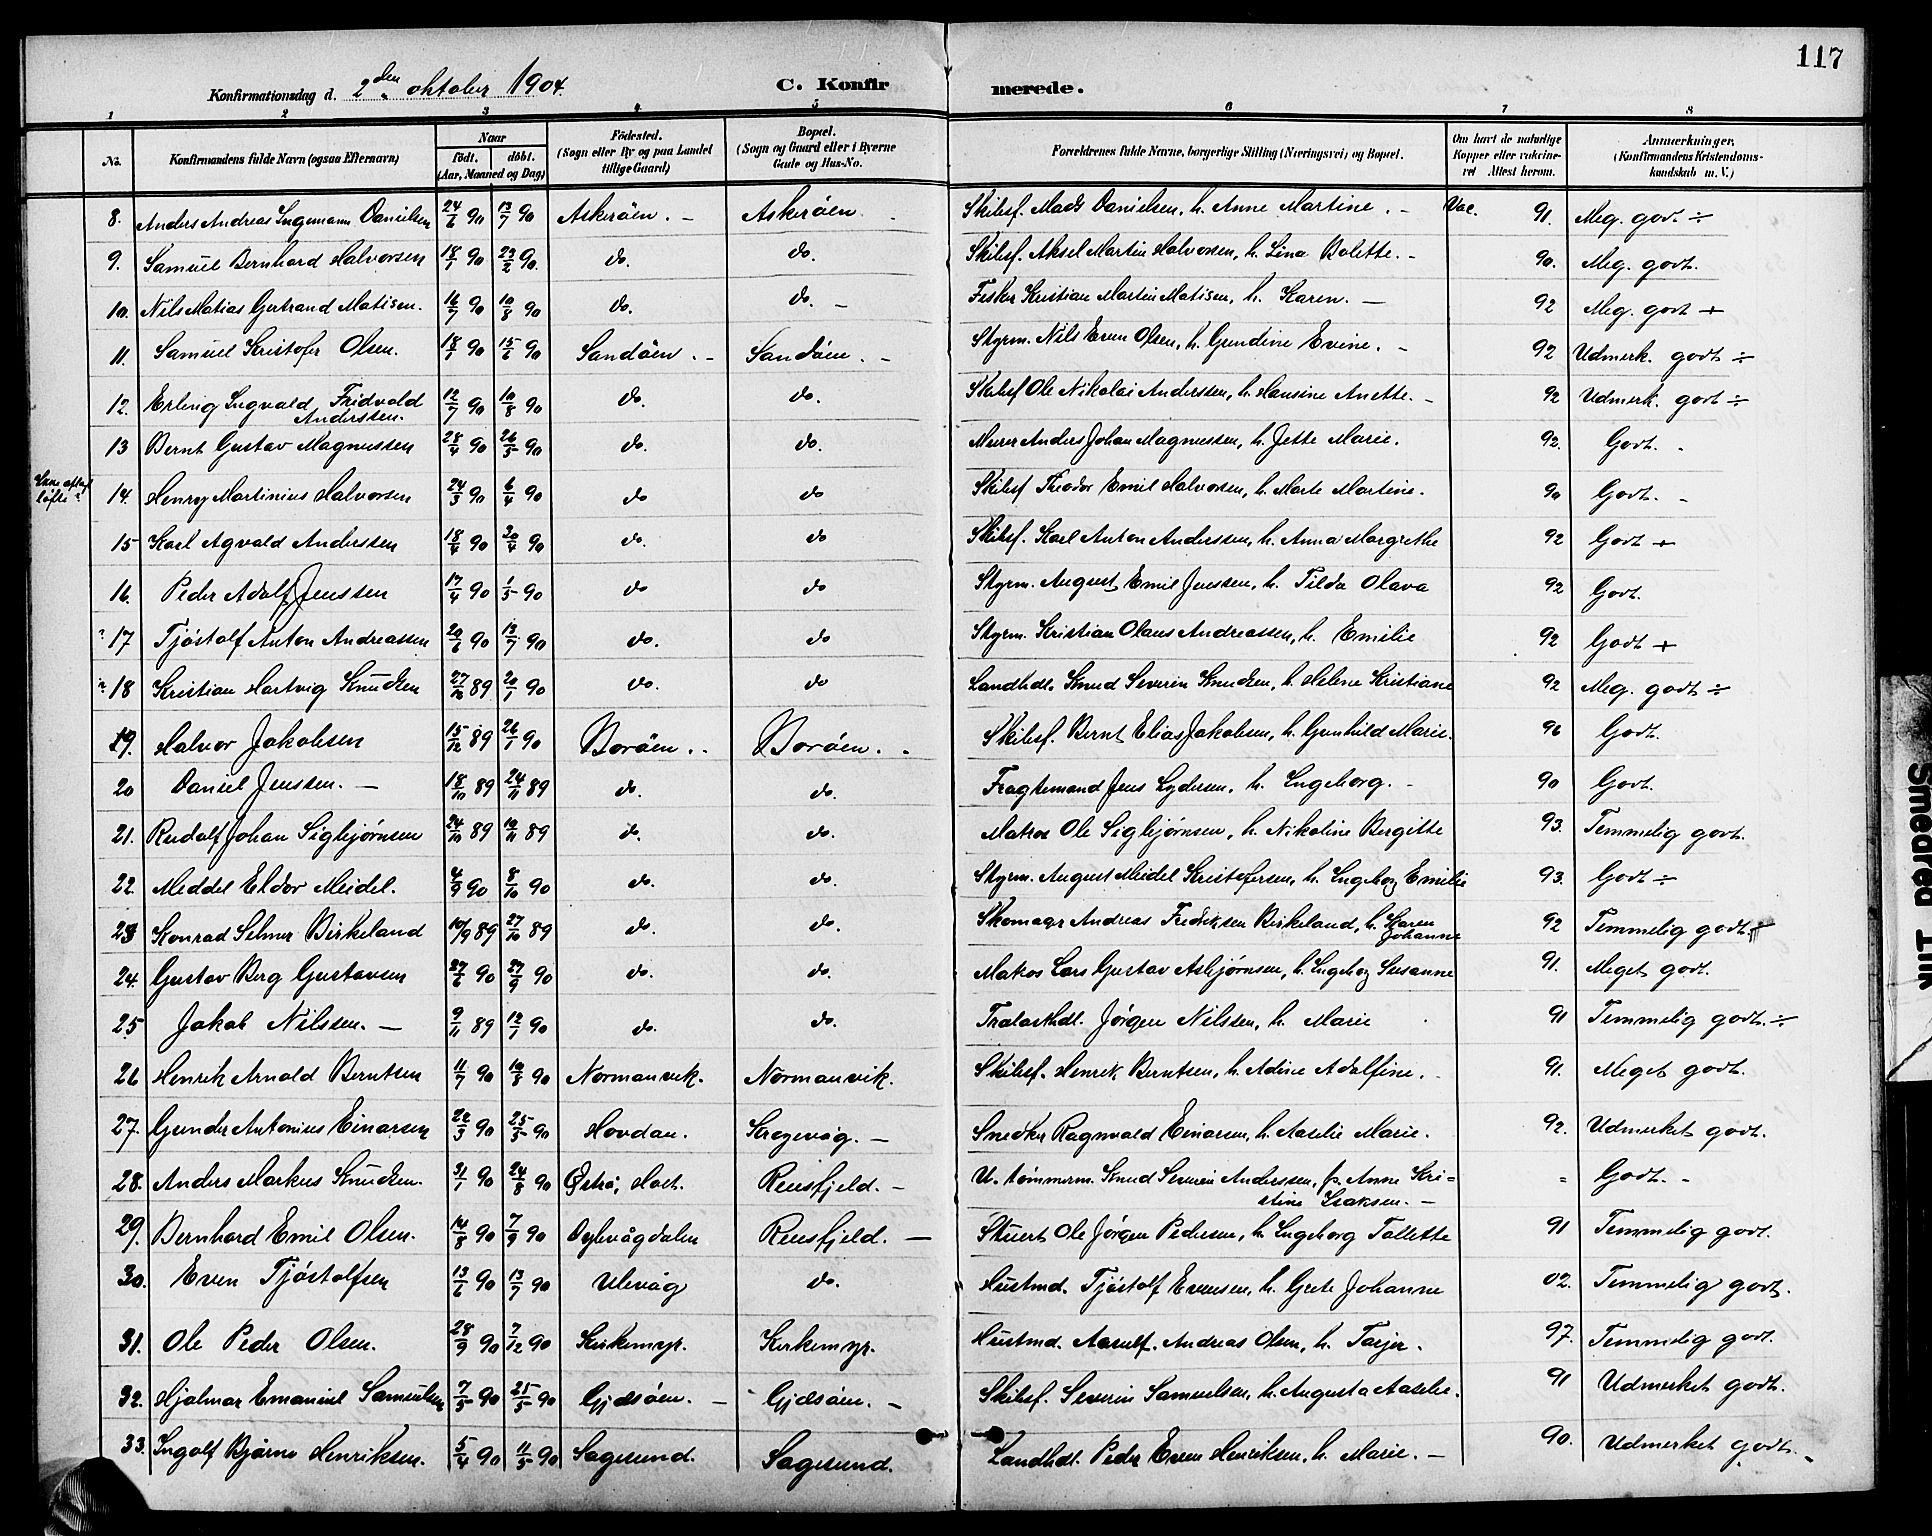 117
Konfirmationsdag d. 2den oktober 1904. C. Konfirmerede.
1 2 3 4 5 6 7 8
No. Konfirmandens fulde Navn (ogsaa Efternavn) Naar født. døbt. (Aar, Maaned og Dag) Fødested. (Sogn eller By og paa Landet tillige Gaard) Bopæl. (Sogn og Gaard eller i Byerne Gade og Hus-No. Forældrenes fulde Navne, borgerlige Stilling (Næringsvei) og Bopæl. Om havt de naturlige Kopper eller vakcineret Attest herom. Anmerkninger, (Konfirmandens Kristendomskundskab m. V.)
8. Anders Andreas Ingemann Danielsen 24/6 90 13/7 90 Askerøen. - Askerøen. Skibsf. Mads Danielsen, h. Anne Martine. - Vac. 91. Meg. godt ÷
9. Samuel Bernhard Halvorsen 18/1 90 23/2 90. do. do. Skibsf. Aksel Martin Halvorsen, h. Lina Bolette. - 90. Meg. godt.
10. Nils Matias Gertrand Matisen. 16/7 90 10/8 90 do. do. - Fisker Kristian Martin Matisen, h. Karen. - 92 Meg. godt +
11. Samuel Kristofer Olsen. 18/1 90 15/6 90 Sandøen. - Sandøen. - Styrm. Nils Even Olsen, h. Gundine Evine. - 92 Udmerk. godt ÷
12. Erling Ingvald Fridvald Anderssen. 12/7 90 10/8 90 do. do. Skibsf Ole Nikolai Anderssen, h. Hansine Anette. - 92 Udmerk. godt ÷
13 Bernt Gustav Magnussen 28/4 90 26/5 90 do. do. Murer Anders Johan Magnussen, h. Jette Marie. 92. Godt.
14. Henry Martinius Halvorsen 24/3 90 6/4 90 do do Skibsf Theodor Emil Halvorsen, h. Marte Martine. 90 Godt. -
15 Karl Agvald Anderssen 18/4 90 20/4 90 do. do Skibsf. Karl Anton Anderssen, h. Anna Margrethe 92 Godt +
16. Peder Adolf Jenssen 17/4 90 1/5 90 do do Styrm. August Emil Jenssen, h. Tilda Olava 92 Godt.
17 Tjøstolf Anton Andreassen 20/6 90 13/7 90 do. do Styrm. Kristian Olaus Andreassen, h. Emilie 92 Godt +
18 Kristian Hartvig Knudsen 27/10 89 20/1 90 do. do Landhdl. Knud Severin Knudsen, h. Helene Kristiane 92 Meg. godt ÷
19. Halvor Jakobsen 15/12 89 26/1 90 Borøen. . Borøen. . Skibsf. Bernt Elias Jakobsen, h. Gunhild Marie. 96 Godt.
20 Daniel Jenssen. - 18/10 89 24/11 89 do. do. Fragtemand Jens Lydersen, h. Ingeborg. - 90 Godt.
21. Rudolf Johan Sigbjørnsen 24/10 89 10/11 89 do. do. Matros Ole Sigbjørnsen, h. Nikoline Bergitte 93. Temmelig godt.
22. Meddel Eldor Meidel. 4/9 90 8/10 90 do. do. Styrm. August Meidel Kristofersen, h. Ingeborg Emilie 93. Godt ÷
23 Konrad Selmer Birkeland 10/9 89 27/10 89 do. do. Skomager Andreas Fredriksen Birkeland, h. Karen Johanne 92 Temmelig godt.
24. Gustav Berg Gustavsen 27/6 90 27/9 90 do. do. Matros Lars Gustav Asbjørnsen, h. Ingeborg Susanne 91. Meget godt.
25 Jakob Nilssen. - 9/11 89 12/1 90 do. do. Trælasthdl. Jørgen Nilssen, h. Marie 91 Temmelig godt. ÷
26 Henrik Arnold Berntsen 11/7 90 10/8 90 Normanvik. Normanvik. Skibsf. Henrik Berntsen, h. Adine Adolfine. 91. Meget godt.
27. Gunder Antonius Einarsen 22/3 90 25/5 90 Hovdan. Krogevåg. - Snedker Ragnvald Einarsen, h. Aaselie Marie. 92. Udmerket godt.
28. Anders Markus Knudsen. 31/1 90 24/8 90 Østrø, Holt. Reusfjeld. - U. tømmerm. Knud Severin Anderssen, p. Anne Kristine Isaksen. - " Godt. -
29. Bernhard Emil Olsen. 14/8 90 7/9 90 Dybvågdalen Reusfjeld. - Stuert Ole Jørgen Pedersen, h. Ingeborg Tallette 91 Temmelig godt.
30. Even Tjøstolfsen 13/6 90 13/7 90 Ulevåg do. Hustmd. Tjøstolf Evensen, h. Grete Johanne 02. Temmelig godt.
31. Ole Peder Olsen. 28/9 90 7/12 90 Kirkemyr. Kirkemyr. Hustmd. Aanulf. Andreas Olsen, h. Tarjer. 97. Temmelig godt.
32. Hjalmar Emanuel Samuelsen 7/5 90 25/5 90 Gjesøen. - Gjesøen. - Skibsf. Severin Samuelsen, h. Augusta Aaselie. 91 Udmerket godt.
33. Ingolf Bjarne Henriksen. 5/4 90 11/5 90 Sagesund. Sagesund. Landhdl. Peder Even Henriksen, h. Marie. - 90. Udmerket godt.